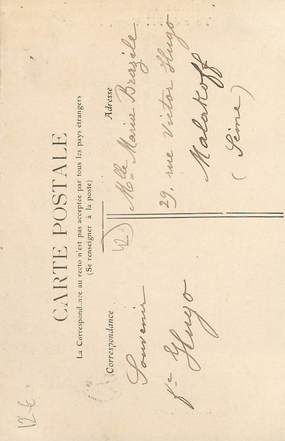 CARTE POSTALE
La Correspondance au recto n'est pas acceptée par tous les pays étrangers
(Se renseigner à la poste)
Correspondance
Adresse
Souvenir
Hugo
Mlle Maria Brazile
29, rue Victor Hugo
Malakoff
(Seine)
12€